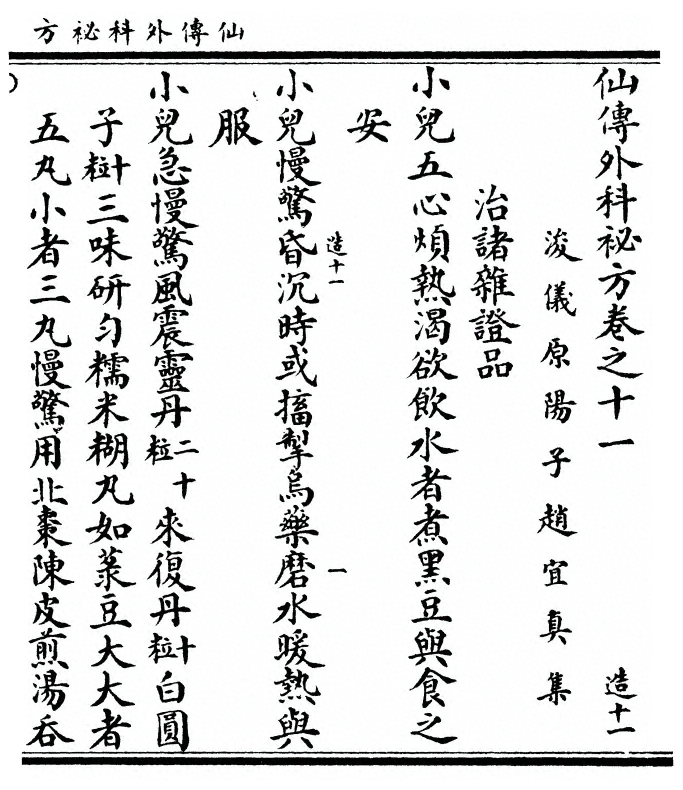 仙傳外科祕方
仙傳外科祕方卷之十一 造十一
浚儀原陽子趙宜真集
治諸雜證品
小兒五心煩熱渴欲飲水者煮黑豆與食之
安
造十一 一
小兒慢驚昏沉時或搐掣烏藥磨水暖熱與
服
小兒急慢驚風震靈丹二十粒來復丹十粒白圓
子十粒三味研匀糯米糊丸如菉豆大大者
五丸小者三丸慢驚用北棗陳皮煎湯吞